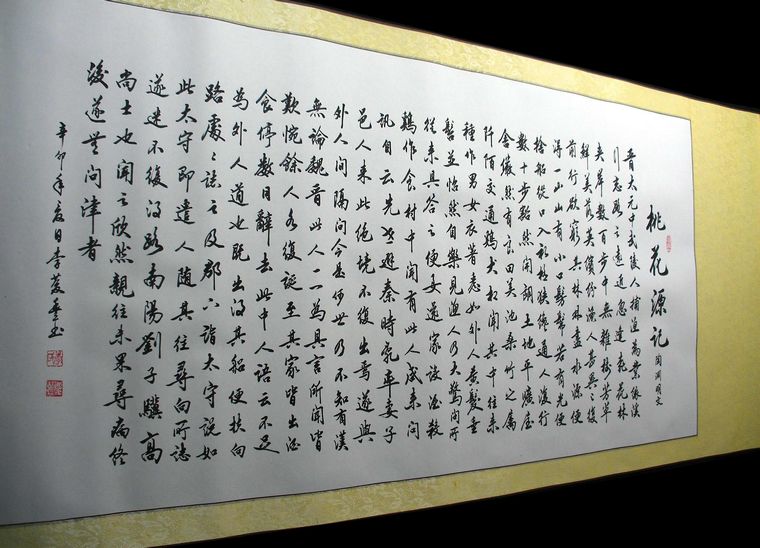 桃花源記 陶淵明文
晉太元中武陵人捕漁為業緣溪
行忘路之遠近忽逢桃花林
夾岸數百步中無雜樹芳草
鮮美落英繽紛漁人甚異之復
前行欲窮其林林盡水源便
得一山山有小口髣髴若有光便
捨船從口入初極狹纔通人復行
數十步豁然開朗土地平曠屋
舍儼然有良田美池桑竹之屬
阡陌交通鷄犬相聞其中往來
種作男女衣著悉如外人黃髮垂
髫並怡然自樂見漁人乃大驚問所
從來具答之便要還家設酒殺
鷄作食村中聞有此人咸來問
訊自云先世避秦時亂率妻子
邑人來此絕境不復出焉遂與
外人間隔問今是何世乃不知有漢
無論魏晉此人一一為具言所聞皆
歎惋餘人各復延至其家皆出酒
食停數日辭去此中人語云不足
為外人道也既出得其船便扶向
路處々誌之及郡下詣太守說如
此太守即遣人隨其往尋向所誌
遂迷不復得路南陽劉子驥高
尚士也聞之欣然親往未果尋病終
後遂無問津者
辛卯年夏日李